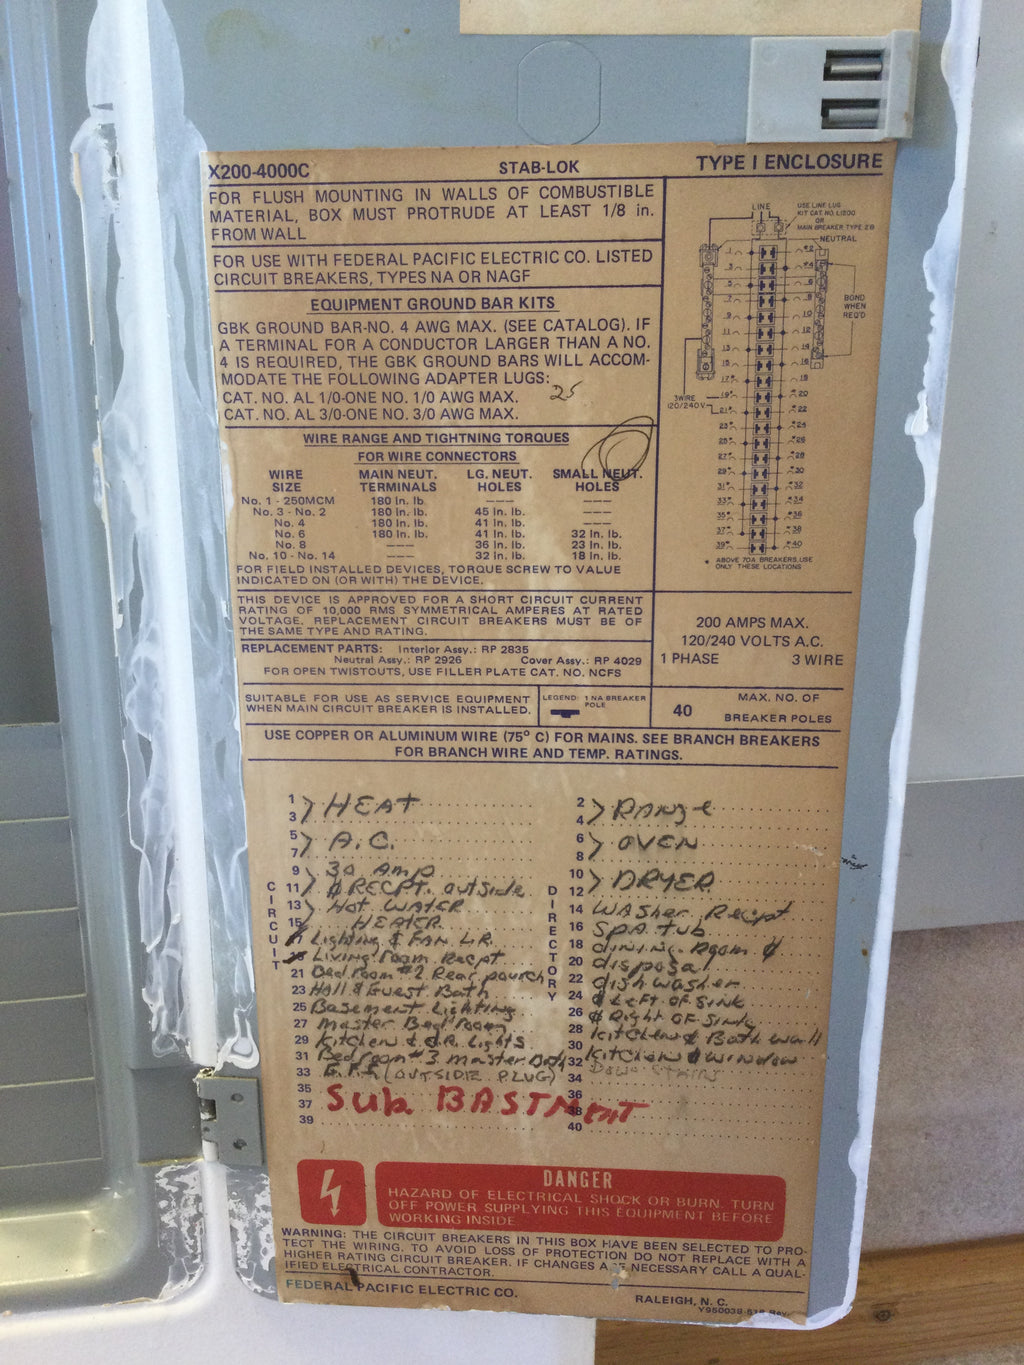 X200-4000C STAB-LOK TYPE I ENCLOSURE
FOR FLUSH MOUNTING IN WALLS OF COMBUSTIBLE
MATERIAL, BOX MUST PROTRUDE AT LEAST 1/8 in.
FROM WALL
FOR USE WITH FEDERAL PACIFIC ELECTRIC CO. LISTED
CIRCUIT BREAKERS, TYPES NA OR NAGF
EQUIPMENT GROUND BAR KITS
GBK GROUND BAR-NO. 4 AWG MAX. (SEE CATALOG). IF
A TERMINAL FOR A CONDUCTOR LARGER THAN A NO.
4 IS REQUIRED, THE GBK GROUND BARS WILL ACCOM-
MODATE THE FOLLOWING ADAPTER LUGS:
CAT. NO. AL 1/0-ONE NO. 1/0 AWG MAX.
25
CAT. NO. AL 3/0-ONE NO. 3/0 AWG MAX.
WIRE RANGE AND TIGHTNING TORQUES
FOR WIRE CONNECTORS
WIRE MAIN NEUT. LG. NEUT. SMALL NEUT.
SIZE TERMINALS HOLES HOLES
No. 1 - 250MCM 180 In. lb. --- ---
No. 3 - No. 2 180 In. lb. 45 In. lb. ---
No. 4 180 In. lb. 41 In. lb. ---
No. 6 180 In. lb. 41 In. lb. 32 In. lb.
No. 8 --- 36 In. lb. 23 In. lb.
No. 10 - No. 14 --- 32 In. lb. 18 In. lb.
FOR FIELD INSTALLED DEVICES, TORQUE SCREW TO VALUE
INDICATED ON (OR WITH) THE DEVICE.
THIS DEVICE IS APPROVED FOR A SHORT CIRCUIT CURRENT
RATING OF 10,000 RMS SYMMETRICAL AMPERES AT RATED
VOLTAGE. REPLACEMENT CIRCUIT BREAKERS MUST BE OF
THE SAME TYPE AND RATING.
REPLACEMENT PARTS: Interior Assy.: RP 2835
Neutral Assy.: RP 2926 Cover Assy.: RP 4029
FOR OPEN TWISTOUTS, USE FILLER PLATE CAT. NO. NCFS
SUITABLE FOR USE AS SERVICE EQUIPMENT
WHEN MAIN CIRCUIT BREAKER IS INSTALLED.
LEGEND: 1 NA BREAKER
POLE
LINE
USE LINE LUG
KIT CAT. NO. L1200
OR
MAIN BREAKER TYPE 2B
NEUTRAL
BOND
WHEN
REQ'D
3WIRE
120/240V
1 2
3 4
5 6
7 8
9 10
11 12
13 14
15 16
17 18
19 20
21 22
23 24
25 26
27 28
29 30
31 32
33 34
35 36
37 38
39 40
* ABOVE 70A BREAKERS, USE
ONLY THESE LOCATIONS
200 AMPS MAX.
120/240 VOLTS A.C.
1 PHASE 3 WIRE
40 MAX. NO. OF
BREAKER POLES
USE COPPER OR ALUMINUM WIRE (75° C) FOR MAINS. SEE BRANCH BREAKERS
FOR BRANCH WIRE AND TEMP. RATINGS.
CIRCUIT
1 HEAT
3
5 A.C.
7
9 30 Amp
11 RECPT. outside
13 HOT WATER
15 HEATER
17 Lighting & FAN L.R.
19 Living Room Recpt
21 Bedroom #2 Rear pourch
23 Hall & Guest Bath
25 Basement Lighting
27 Master Bed Room
29 Kitchen & D.R. Lights
31 Bedroom #3 master Bath
33 G.F.I (OUTSIDE PLUG)
35
37 Sub. BASTMENT
39
DIRECTORY
2 RANGE
4
6 OVEN
8
10 DRYER
12
14 WASHER Recpt
16 SPA tub
18 dining Room
20 disposal
22 dish washer
24 Left OF Sink
26 Right OF Sink
28 Kitchen Bath wall
30 Kitchen window
32 DOWN STAIRS
34
36
38
40
DANGER
HAZARD OF ELECTRICAL SHOCK OR BURN. TURN
OFF POWER SUPPLYING THIS EQUIPMENT BEFORE
WORKING INSIDE
WARNING: THE CIRCUIT BREAKERS IN THIS BOX HAVE BEEN SELECTED TO PRO-
TECT THE WIRING. TO AVOID LOSS OF PROTECTION DO NOT REPLACE WITH A
HIGHER RATING CIRCUIT BREAKER. IF CHANGES ARE NECESSARY CALL A QUAL-
IFIED ELECTRICAL CONTRACTOR.
FEDERAL PACIFIC ELECTRIC CO. RALEIGH, N. C.